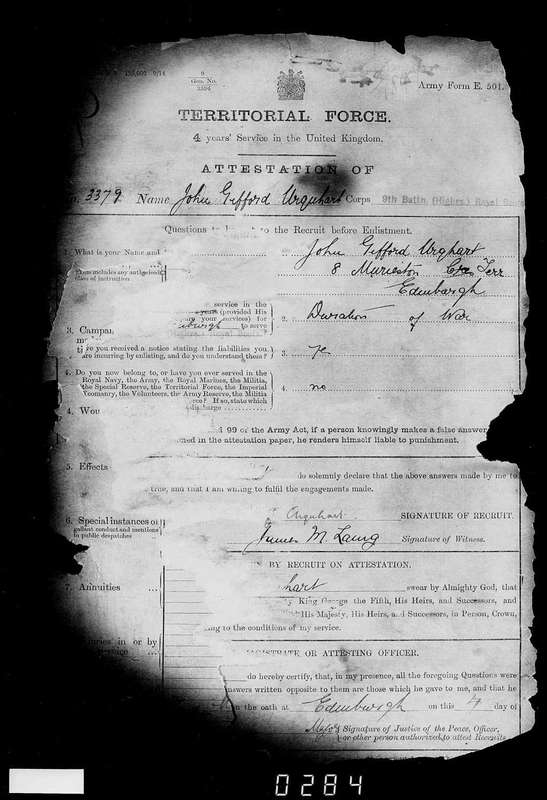 9/14
9
Gen. No.
Army Form E. 501.
TERRITORIAL FORCE.
4 years' Service in the United Kingdom.
ATTESTATION OF
3379 Name John Gifford Urquhart Corps 9th Battn. (Highrs.) Royal
Questions to the Recruit before Enlistment.
1. What is your Name and
John Gifford Urquhart
8 Murieston Terr
Edinburgh
class of instruction
service in the
years (provided His
your services) for
to serve
2. Duration of War
3. Campai
ve you received a notice stating the liabilities you
are incurring by enlisting, and do you understand them?
3. Yes
4. Do you now belong to, or have you ever served in the
Royal Navy, the Army, the Royal Marines, the Militia,
the Special Reserve, the Territorial Force, the Imperial
Yeomanry, the Volunteers, the Army Reserve, the Militia
If so, state which
discharge
4. no
4. Wou
99 of the Army Act, if a person knowingly makes a false answer
in the attestation paper, he renders himself liable to punishment.
5. Effects
do solemnly declare that the above answers made by me to
true, and that I am willing to fulfil the engagements made.
Urquhart SIGNATURE OF RECRUIT.
6. Special instances of
gallant conduct and mentions
in public despatches
James M Laing Signature of Witness.
BY RECRUIT ON ATTESTATION.
hart swear by Almighty God, that
7. Annuities
King George the Fifth, His Heirs, and Successors, and
His Majesty, His Heirs, and Successors, in Person, Crown,
to the conditions of my service.
in or by
MAGISTRATE OR ATTESTING OFFICER.
do hereby certify, that, in my presence, all the foregoing Questions were
answers written opposite to them are those which he gave to me, and that he
the oath at Edinburgh on this 4 day of
Major Signature of Justice of the Peace, Officer,
or other person authorized to attest Recruits
0284